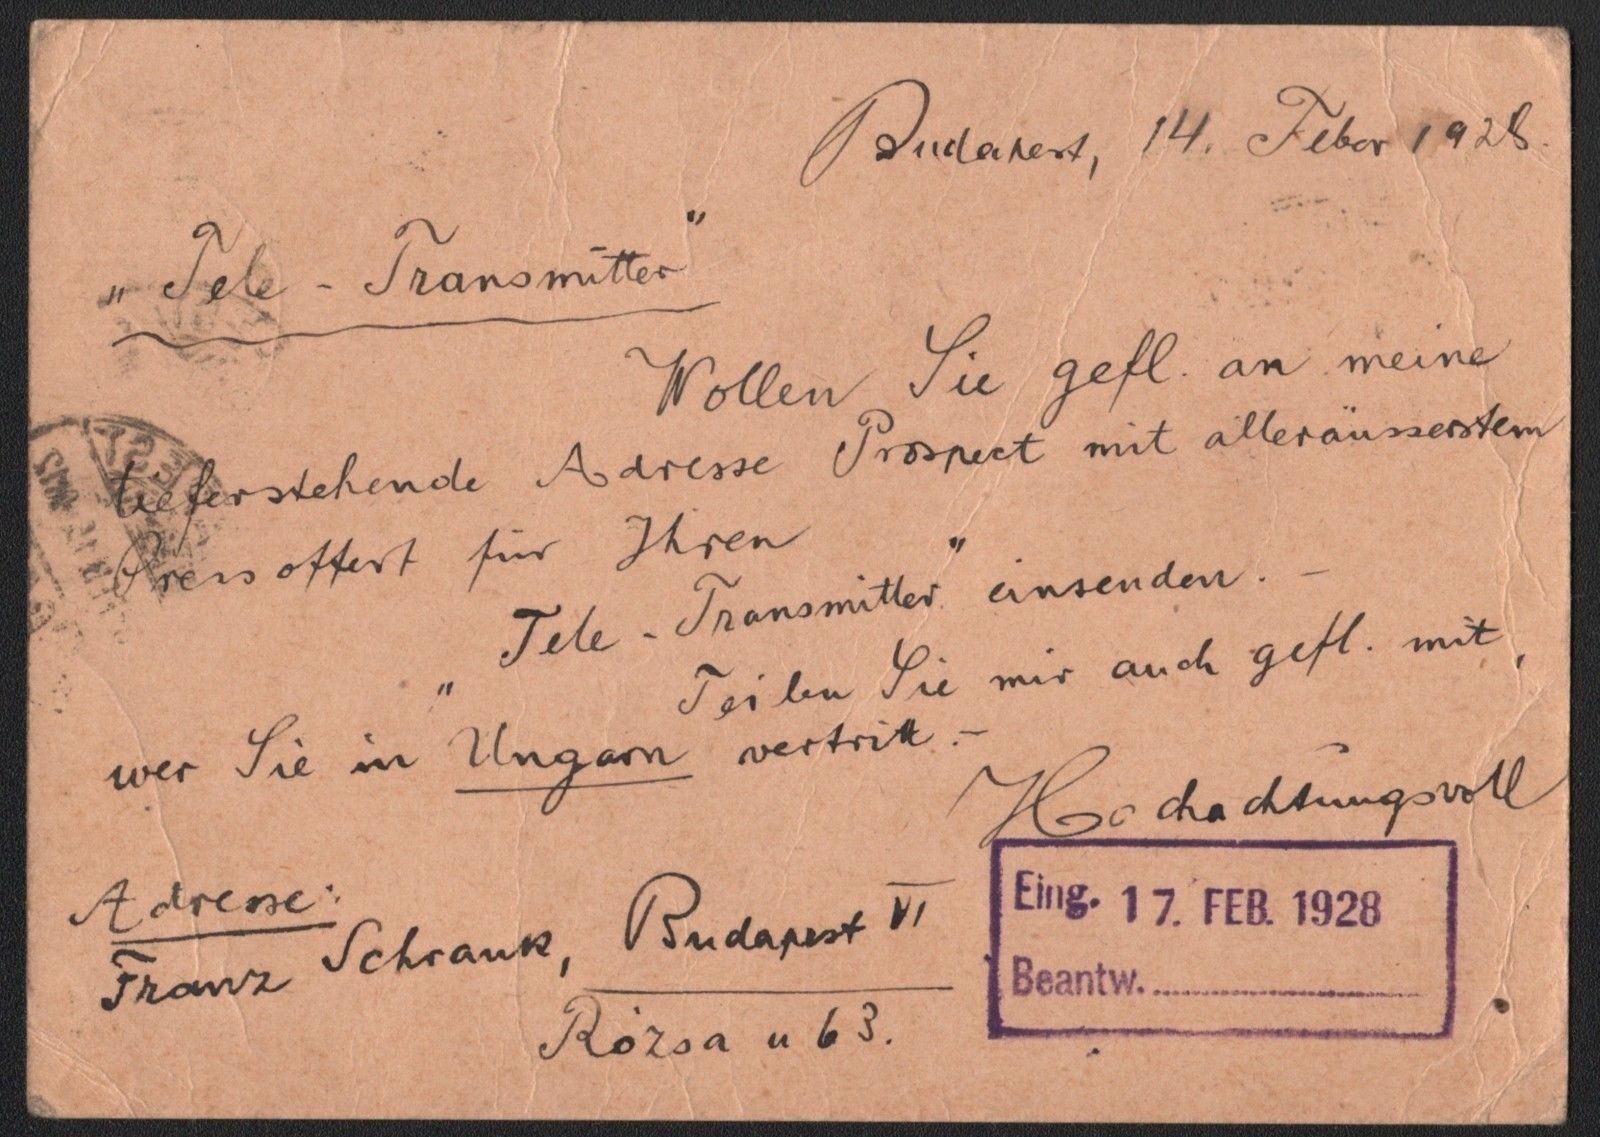 Budapest, 14. Feber 1928.
„Tele-Transmitter"
Wollen Sie gefl. an meine
tieferstehende Adresse Prospect mit alleräusserstem
Preisoffert für Ihren
„Tele-Transmitter" einsenden. –
Teilen Sie mir auch gefl. mit,
wer Sie in Ungarn vertritt. –
Hochachtungsvoll
Adresse:
Franz Schrank, Budapest VI
Rózsa u 63.
Eing. 17. FEB. 1928
Beantw.